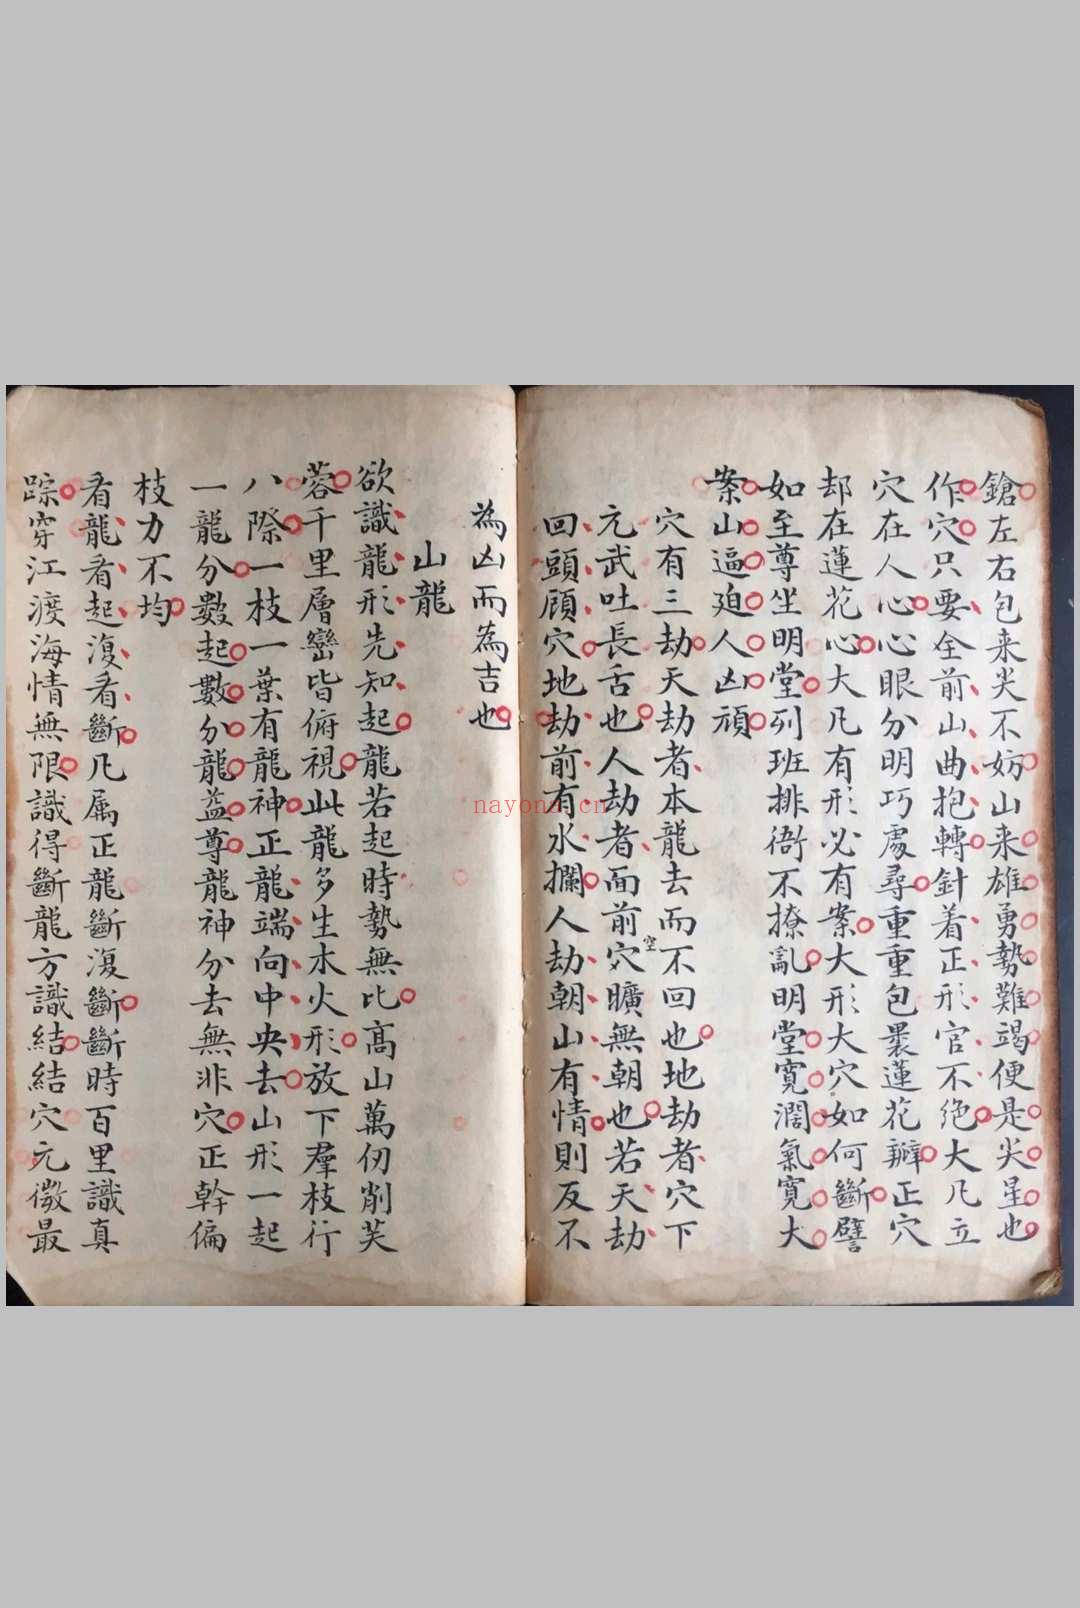 鎗左右包来尖不妨山来雄勇勢難竭便是尖星也
作穴只要全前山曲抱轉針着正形官不絶大凡立
穴在人心心眼分明巧處尋重重包褁蓮花辦正穴
却在蓮花心大凡有形必有案大形大穴如何斷譬
如至尊坐明堂列班排衙不撩亂明堂寛濶氣寛大
案山逼廹人凶頑
穴有三劫天劫者本龍去而不回也地劫者穴下
元武吐長舌也人劫者面前穴曠無朝也若天劫
空
回頭顧穴地劫前有水攔人劫朝山有情則反不
為凶而為吉也
山龍
欲識龍形先知起龍若起時勢無比高山萬仞削芙
蓉千里層巒皆俯視此龍多生木火形放下羣枝行
八際一枝一葉有龍神正龍端向中央去山形一起
一龍分數起數分龍益尊龍神分去無非穴正幹偏
枝力不均
看龍看起復看斷凡属正龍斷復斷斷時百里識真
踪穿江渡海情無限識得斷龍方識結結穴元微最
nayona.cn